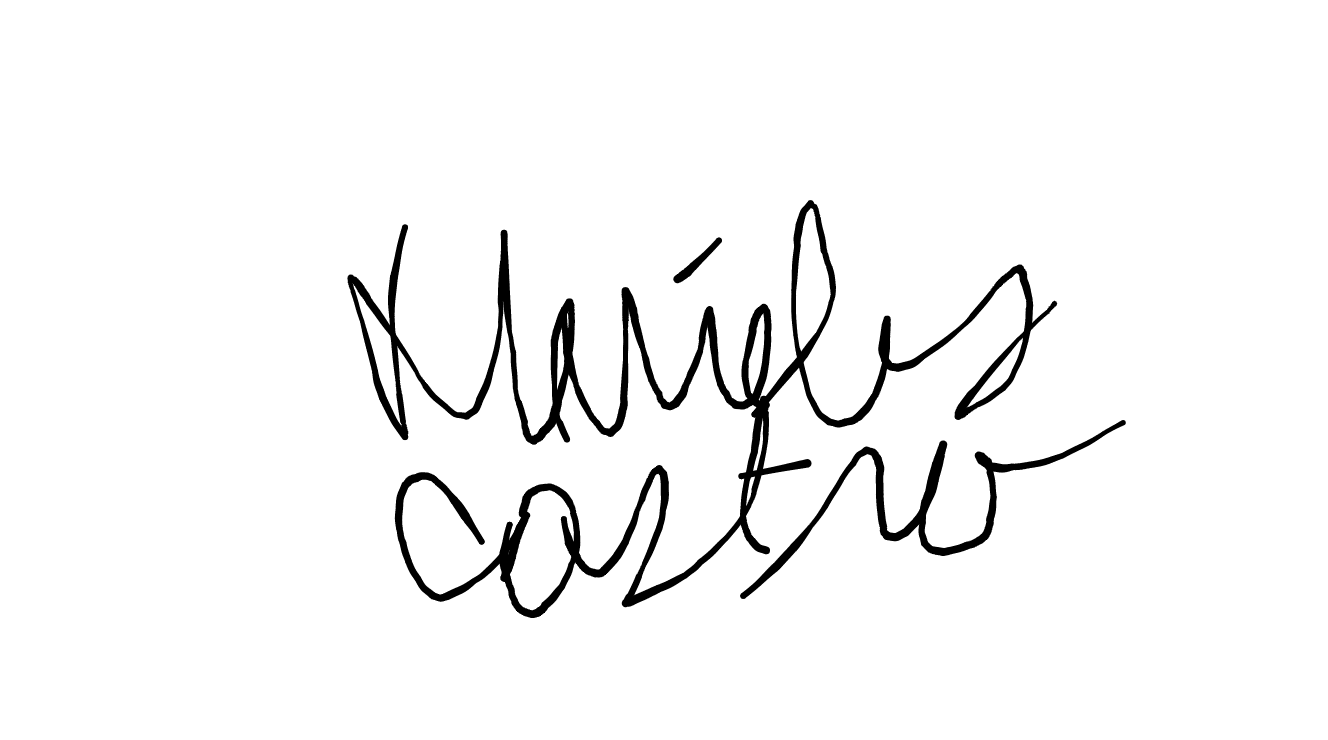 Marielys
Castro